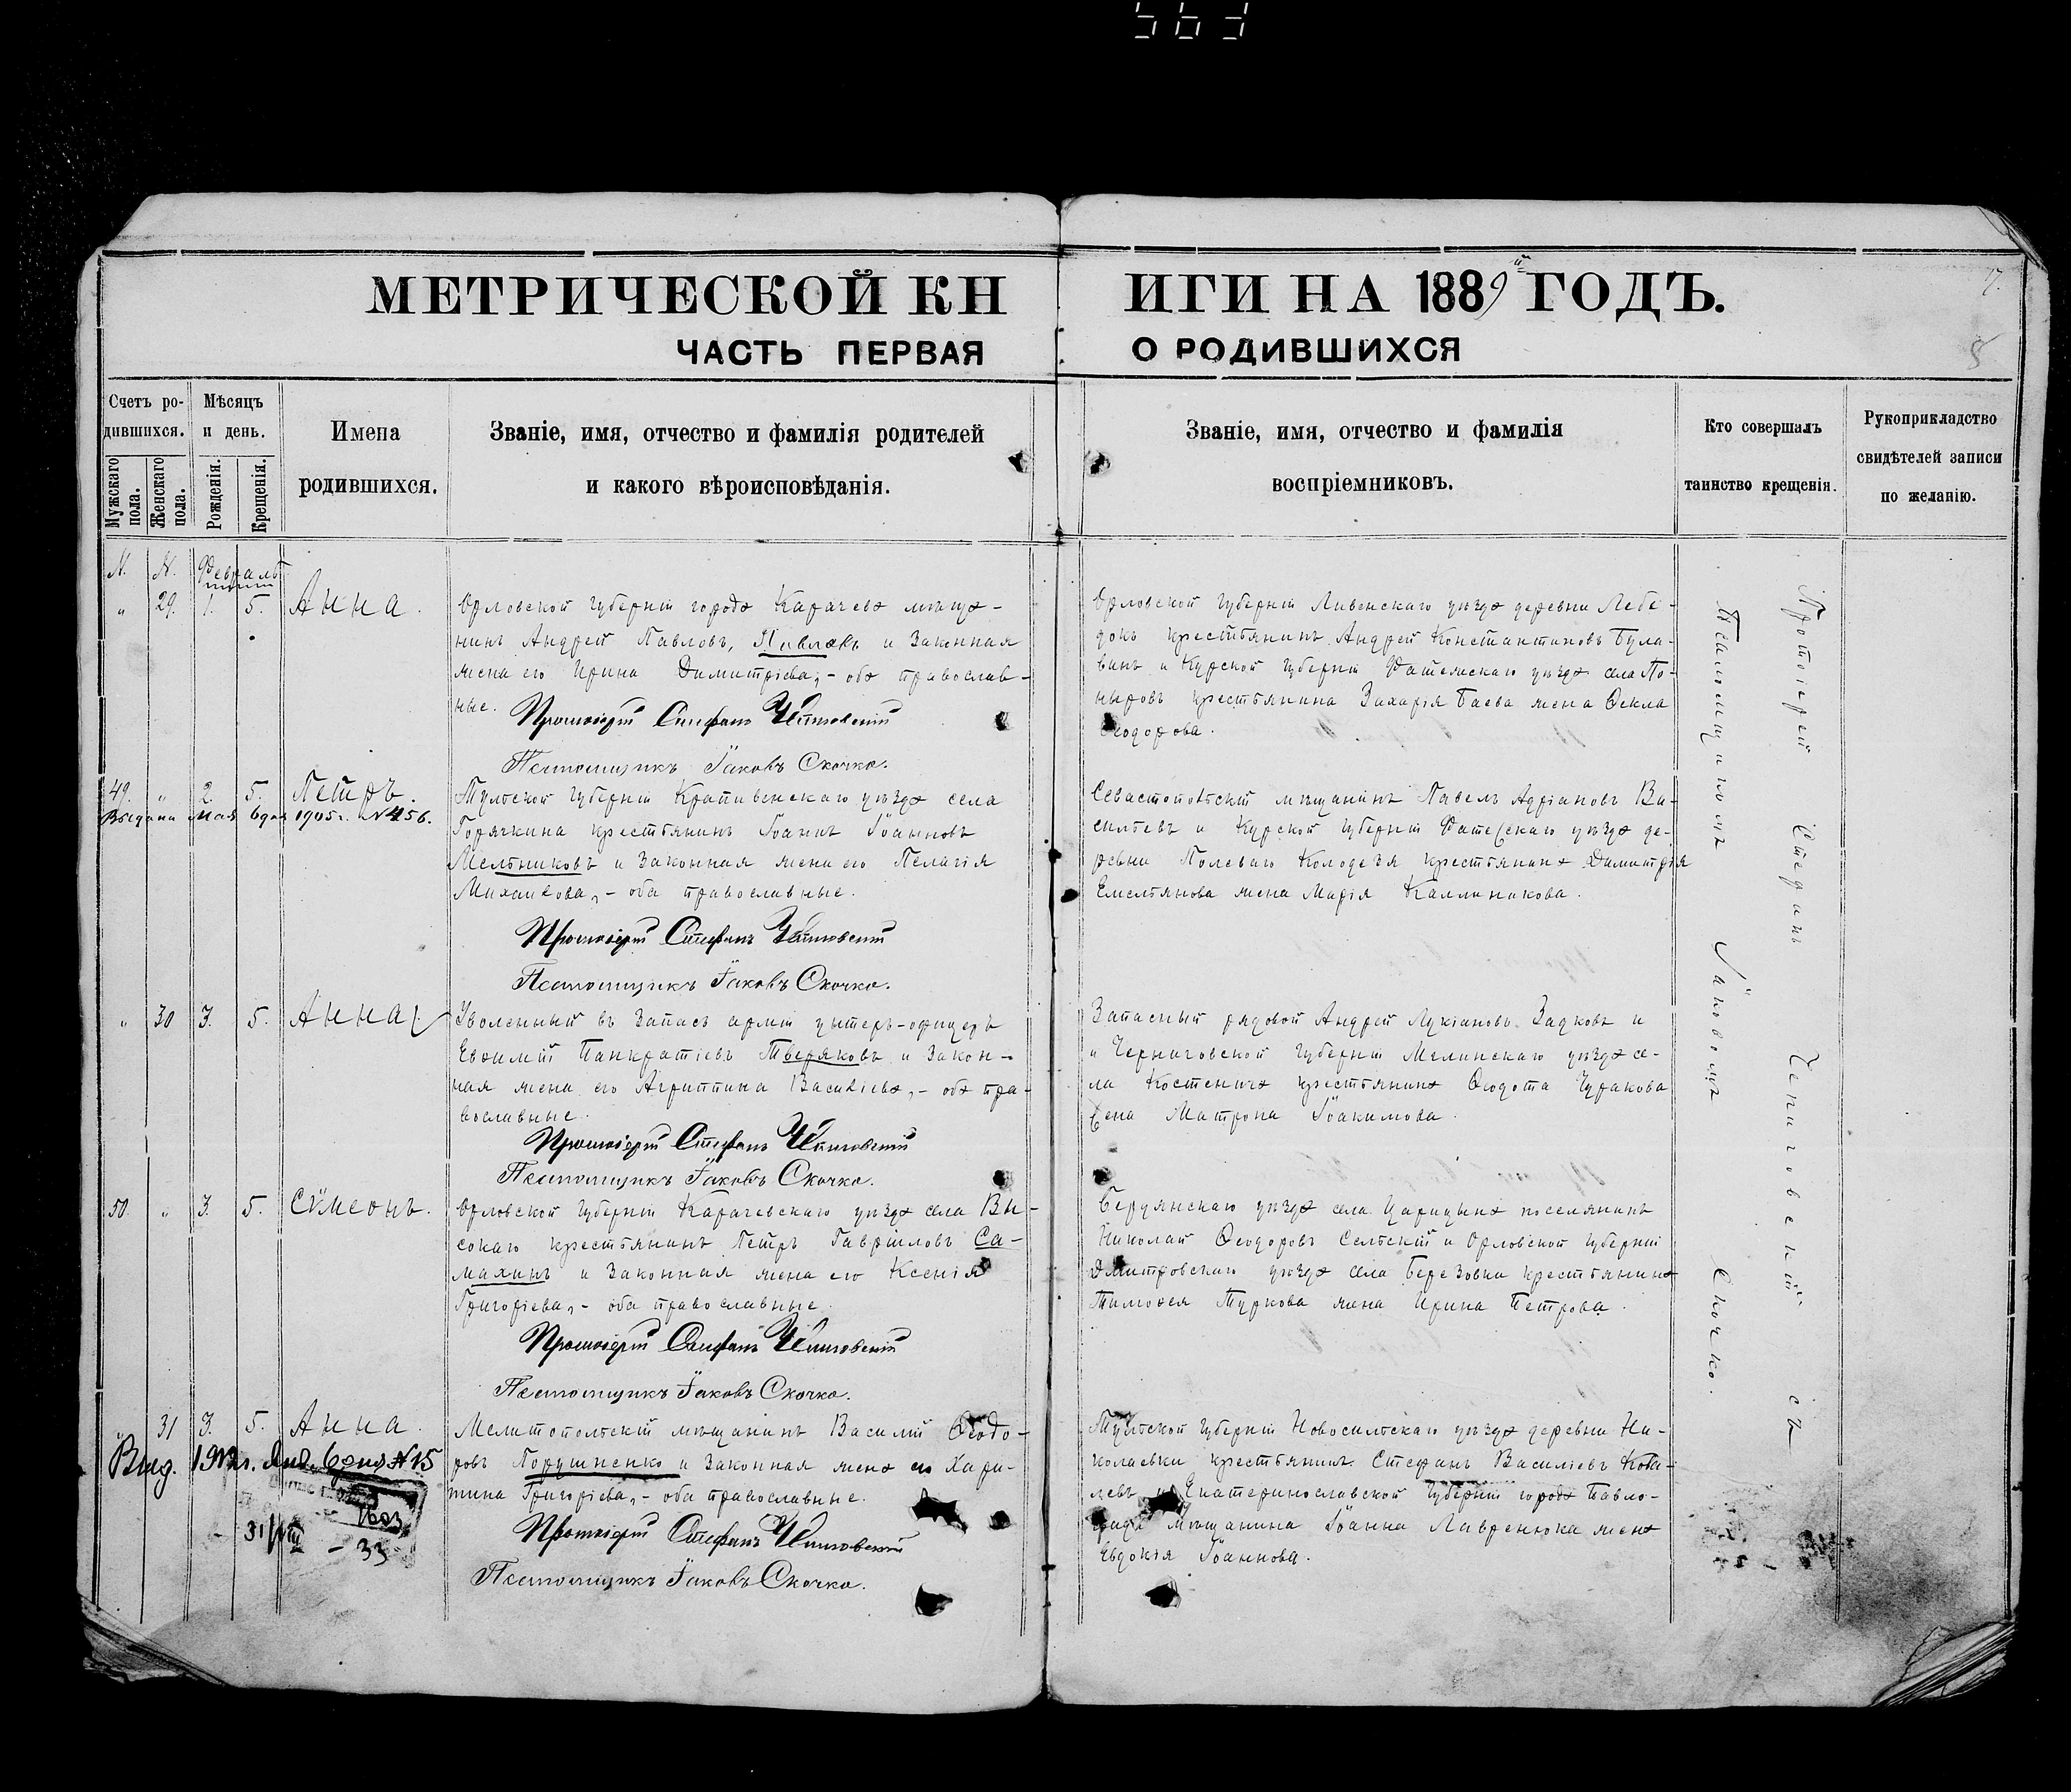 563
МЕТРИЧЕСКОЙ КНИГИ НА 1889й ГОДЪ.
17.
ЧАСТЬ ПЕРВАЯ О РОДИВШИХСЯ
5
Счетъ родившихся.
Мужскаго пола.
Женскаго пола.
Мѣсяцъ и день.
Рожденія.
Крещенія.
Имена родившихся.
Званіе, имя, отчество и фамилія родителей
и какого вѣроисповѣданія.
Званіе, имя, отчество и фамилія
воспріемниковъ.
Кто совершалъ
таинство крещенія.
Рукоприкладство
свидѣтелей записи
по желанію.
N. N. Февраль
" 29. 1. 5. Анна.
Орловской губерніи города Карачева мѣща-
нинъ Андрей Павловъ, Павловъ и законная
жена его Ирина Димитріева, - оба православ-
ные.
Протоіерей Стефанъ
Псаломщикъ Іаковъ Скочко.
Орловской губерніи Ливенскаго уѣзда деревни Лебе-
докъ крестьянинъ Андрей Константиновъ Була-
винъ и Курской губерніи Фатежскаго уѣзда села По-
ныровъ крестьянина Захарія Баева жена Ѳекла
Ѳеодорова.
49. " 2. 5. Петръ.
Выдана мая 6 дня 1905 г. N 456.
Тульской губерніи Крапивенскаго уѣзда села
Горячкина крестьянинъ Іоаннъ Іоанновъ
Мельниковъ и законная жена его Пелагія
Михаилова, - оба православные.
Протоіерей Стефанъ
Псаломщикъ Іаковъ Скочко.
Севастопольскій мѣщанинъ Павелъ Адріановъ Ва-
сильевъ и Курской губерніи Фатежскаго уѣзда де-
ревни Полеваго Колодезя крестьянина Димитрія
Емельянова жена Марія Каллиникова.
" 30 3. 5. Анна.
Уволенный въ запасъ арміи унтеръ-офицеръ
Евѳимій Панкратіевъ Тверяковъ и закон-
ная жена его Агриппина Василіева, - оба пра-
вославные.
Протоіерей Стефанъ
Псаломщикъ Іаковъ Скочко.
Запасный рядовой Андрей Лукіановъ Задковъ и
и Черниговской губерніи Мглинскаго уѣзда се-
ла Костеничь крестьянина Ѳеодота Чуракова
жена Матрона Іоакимова.
50. " 3. 5. Сѵмеонъ.
Орловской губерніи Карачевскаго уѣзда села Вы-
сокаго крестьянинъ Петръ Гавріиловъ Са-
махинъ и законная жена его Ксенія
Григоріева, - оба православные.
Протоіерей Стефанъ
Псаломщикъ Іаковъ Скочко.
Бердянскаго уѣзда села Царицына поселянинъ
Николай Ѳеодоровъ Сельскій и Орловской губерніи
Дмитровскаго уѣзда села Березовки крестьянина
Тимоѳея Туркова жена Ирина Петрова.
" 31 3. 5. Анна.
Выд. Янв. 6 дня N 15
31/VIII - 33
Мелитопольскій мѣщанинъ Василій Ѳеодо-
ровъ Порушненко и законная жена его Хари-
тина Григоріева, - оба православные.
Протоіерей Стефанъ
Псаломщикъ Іаковъ Скочко.
Тульской губерніи Новосильскаго уѣзда деревни Ни-
колаевки крестьянинъ Стефанъ Василіевъ Кова-
левъ и Екатеринославской губерніи города Павло-
града мѣщанина Іоанна Лавренюка жена
Евдокія Іоаннова.
Протоіерей Стефанъ
съ
Псаломщикомъ Іаковомъ Скочко.